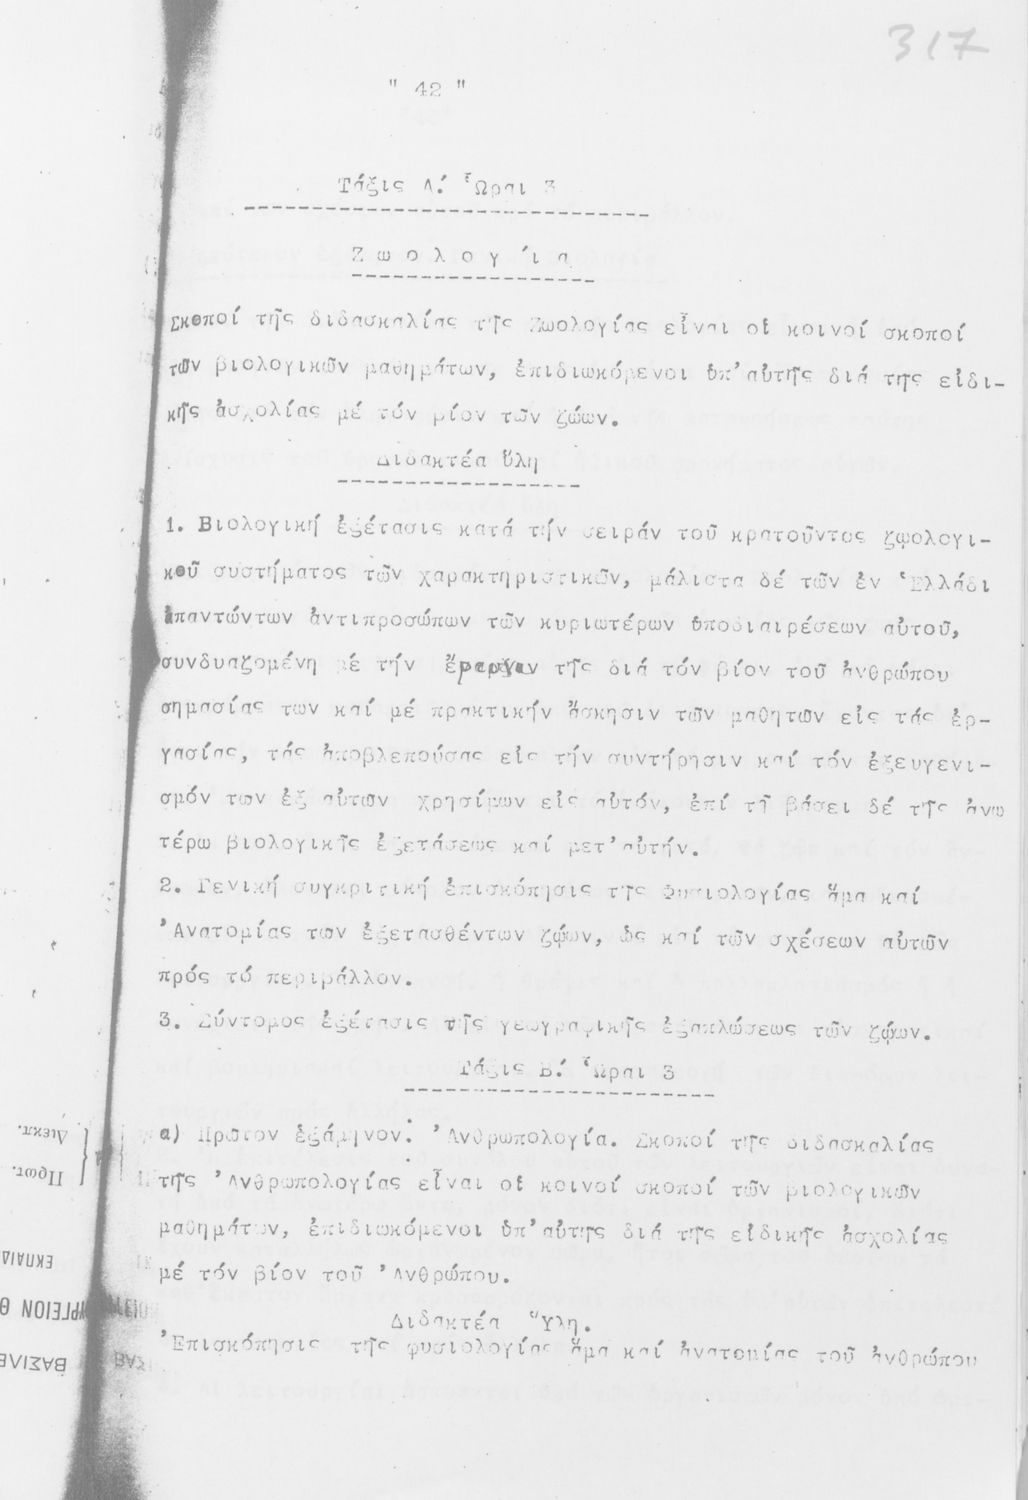 317
" 42 "
Τάξις Α΄. Ὧραι 3
Ζωολογία
Σκοποί τῆς διδασκαλίας τῆς Ζωολογίας εἶναι οἱ κοινοί σκοποί
τῶν βιολογικῶν μαθημάτων, ἐπιδιωκόμενοι ὑπ'αὐτῆς διά τῆς εἰδι-
κῆς ἀσχολίας μέ τόν βίον τῶν ζώων.
Διδακτέα ὕλη
1. Βιολογική ἐξέτασις κατά τήν σειράν τοῦ κρατοῦντος ζῳολογι-
κοῦ συστήματος τῶν χαρακτηριστικῶν, μάλιστα δέ τῶν ἐν Ἑλλάδι
ἀπαντώντων ἀντιπροσώπων τῶν κυριωτέρων ὑποδιαιρέσεων αὐτοῦ,
συνδυαζομένη μέ τήν ἔρευναν τῆς διά τόν βίον τοῦ ἀνθρώπου
σημασίας των καί μέ πρακτικήν ἄσκησιν τῶν μαθητῶν εἰς τάς ἐρ-
γασίας, τάς ἀποβλεπούσας εἰς τήν συντήρησιν καί τόν ἐξευγενι-
σμόν των ἐξ αὐτων χρησίμων εἰς αὐτόν, ἐπί τῇ βάσει δέ τῆς ἀνω
τέρω βιολογικῆς ἐξετάσεως καί μετ'αὐτήν.
2. Γενική συγκριτική ἐπισκόπησις της Φυσιολογίας ἅμα καί
'Ανατομίας των ἐξετασθέντων ζῴων, ὡς καί τῶν σχέσεων αὐτῶν
πρός τό περιβάλλον.
3. Σύντομος ἐξέτασις τῆς γεωγραφικῆς ἐξαπλώσεως τῶν ζῴων.
Τάξις Β΄. Ὧραι 3
α) Πρῶτον ἑξάμηνον: 'Ανθρωπολογία. Σκοποί τῆς διδασκαλίας
τῆς 'Ανθρωπολογίας εἶναι οἱ κοινοί σκοποί τῶν βιολογικῶν
μαθημάτων, ἐπιδιωκόμενοι ὑπ'αὐτης διά τῆς εἰδικῆς ἀσχολίας
μέ τόν βίον τοῦ 'Ανθρώπου.
Διδακτέα Ὕλη.
'Επισκόπησις τῆς φυσιολογίας ἅμα καί ἀνατομίας τοῦ ἀνθρώπου
Διεκπ.
Πρωτ.
ΕΚΠΑΙΔ